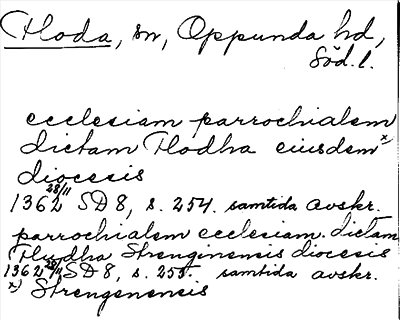 Floda, sn, Oppunda hd,
Söd. l.
ecclesiam parrochialem
dictam Flodha eiusdem x)
diocesis
1362 28/11 SD 8, s. 254. samtida avskr.
parrochialem ecclesiam dictam
Fludha Strenginensis diocesis
1362 28/11 SD 8, s. 255. samtida avskr.
x) Strengenensis